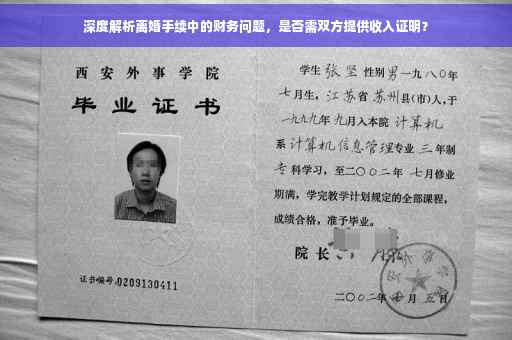 深度解析离婚手续中的财务问题，是否需双方提供收入证明？
西安外事学院
毕业证书
证书编号:0209130411
学生 张坚 性别男 一九八〇年
七月生，江苏省 苏州县(市)人，于
一九九九年 九月入本院 计算机
系计算机信息管理专业 三年制
专科学习，至二〇〇二年 七月修业
期满，学完教学计划规定的全部课程，
成绩合格，准予毕业。
院长
二〇〇二年 月 五日